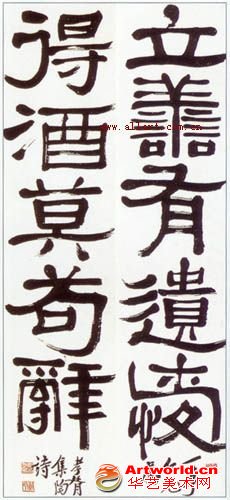 立善有遺愛
得酒莫苟辭
孝胥
集陶
詩
Artworld.cn
华艺美术网